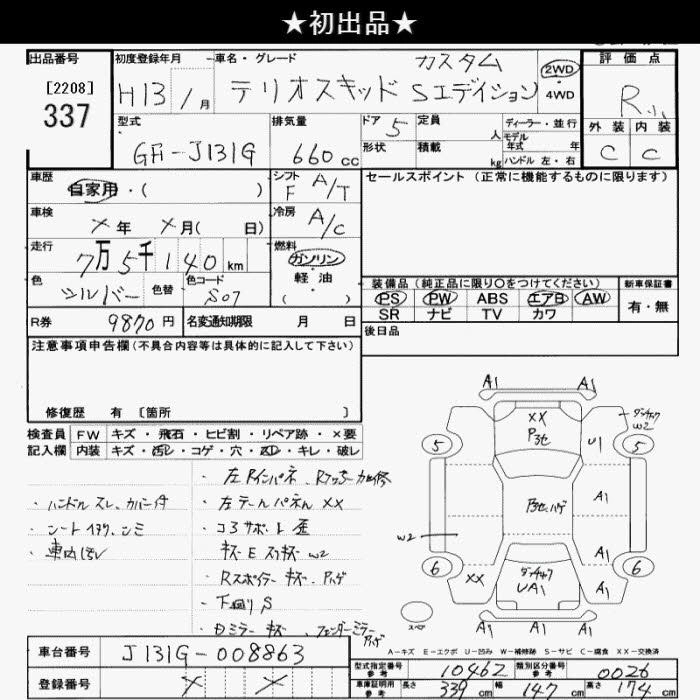 ★初出品★
出品番号
[2208]
337
初度登録年月
H13 / 月
車名・グレード
カスタム
テリオスキッド Sエディション
2WD
4WD
評価点
R
外装 内装
C C
型式
GH-J131G
排気量
660 cc
ドア
5
定員
人
形状
積載
kg
ディーラー・並行
モデル
年式 年
ハンドル 左・右
車歴
自家用・( )
シフト
F A/T
セールスポイント (正常に機能するものに限ります)
車検
× 年 × 月( 日)
冷房
A/C
走行
7万5千140 km
燃料
ガソリン
軽油
( )
色
シルバー
色替
色コード
S07
装備品 (純正品に限り○をつけてください)
PS PW ABS エアB AW
SR ナビ TV カワ
新車保証書
有・無
R券 9870 円
名変通知期限 月 日
後日品
注意事項申告欄 (不具合内容等は具体的に記入して下さい)
修復歴 有 [箇所 ]
検査員 FW キズ・飛石・ヒビ割・リペア跡・×要
記入欄 内装 キズ・汚レ・コゲ・穴・スレ・キレ・破レ
・ハンドル スレ、カバー付
・シート
・車内
・左テールパネル ××
・コアサポート 歪
キズ E スリキズ W2
・Rスポイラー キズ、ハゲ
・下廻り S
・Dミラー キズ フェンダーミラー ハゲ
A1 A1
×× Pコセ
U1
W2
5 5
A1
Pコセ、ハゲ
W2
A1
6 6
××
UA1
A1
A1 A1 A1
スペア
A-キズ E-エクボ U-凹み W-補修跡 S-サビ C-腐食 ××-交換済
車台番号 J131G-008863
登録番号 × ×
型式指定番号 参考 10462 類別区分番号 参考 0026
車庫証明用 参考 長さ 339 cm 幅 147 cm 高さ 174 cm